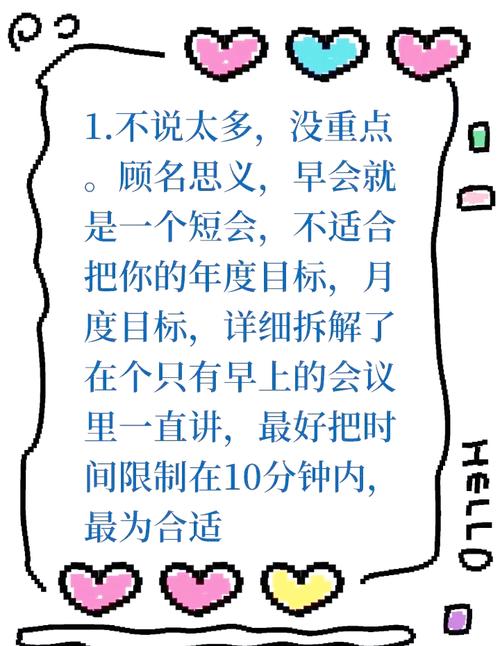 1.不说太多，没重点
。顾名思义，早会就
是一个短会，不适合
把你的年度目标，月
度目标，详细拆解了
在个只有早上的会议
里一直讲，最好把时
间限制在10分钟内，
最为合适
HELLO